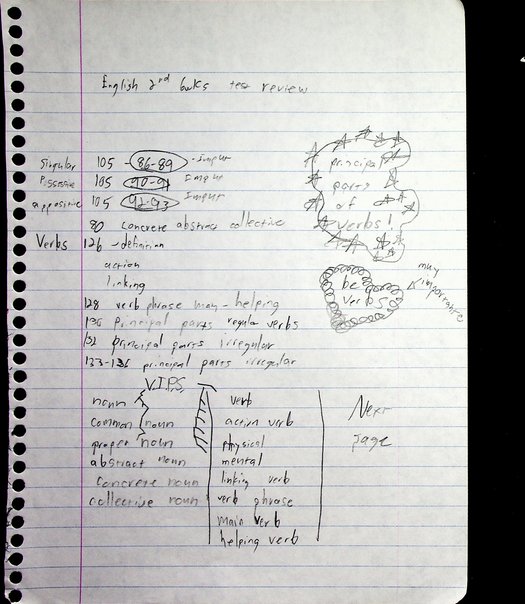 English 2nd books test review
Singular 105 - 86-89 - Impor
Possissive 105 90-91 Impor
appositive 105 92-93 Impor
80 concrete abstract collective
Verbs 126 - definition
action
linking
128 verb phrase main - helping
130 principal parts regular verbs
132 principal parts irregular
133-136 principal parts irregular
principal
parts
of
verbs!
be
verbs
muy
importante
V.I.P.S
noun
common noun
proper noun
abstract noun
concrete noun
collective noun
verb
action verb
physical
mental
linking verb
verb phrase
main verb
helping verb
Next
page